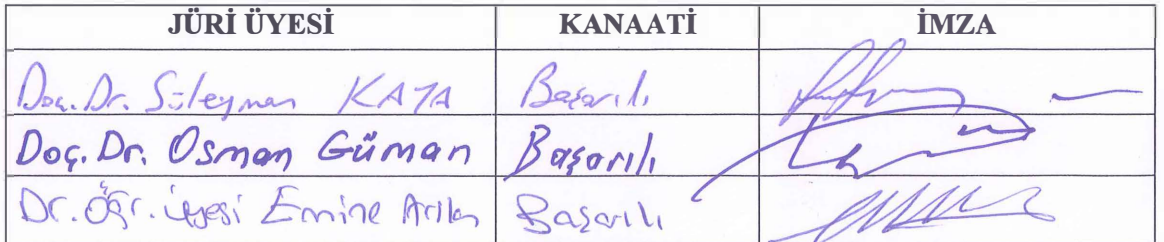 JÜRİ ÜYESİ KANAATİ İMZA
Doç. Dr. Süleyman KAYA Başarılı
Doç. Dr. Osman Güman Başarılı
Dr. Öğr. Üyesi Emine Arslan Başarılı